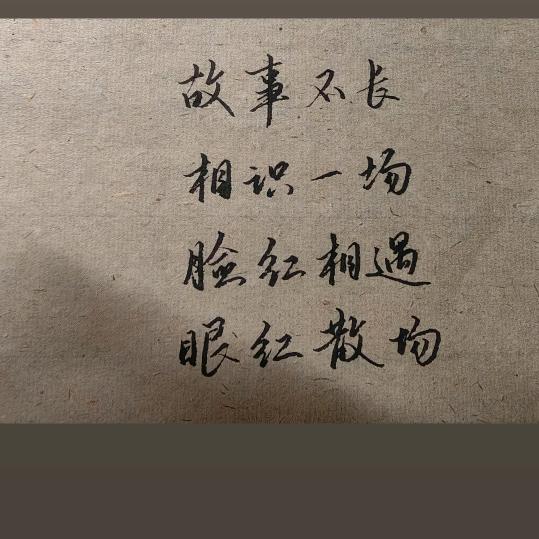 故事不长
相识一场
脸红相遇
眼红散场